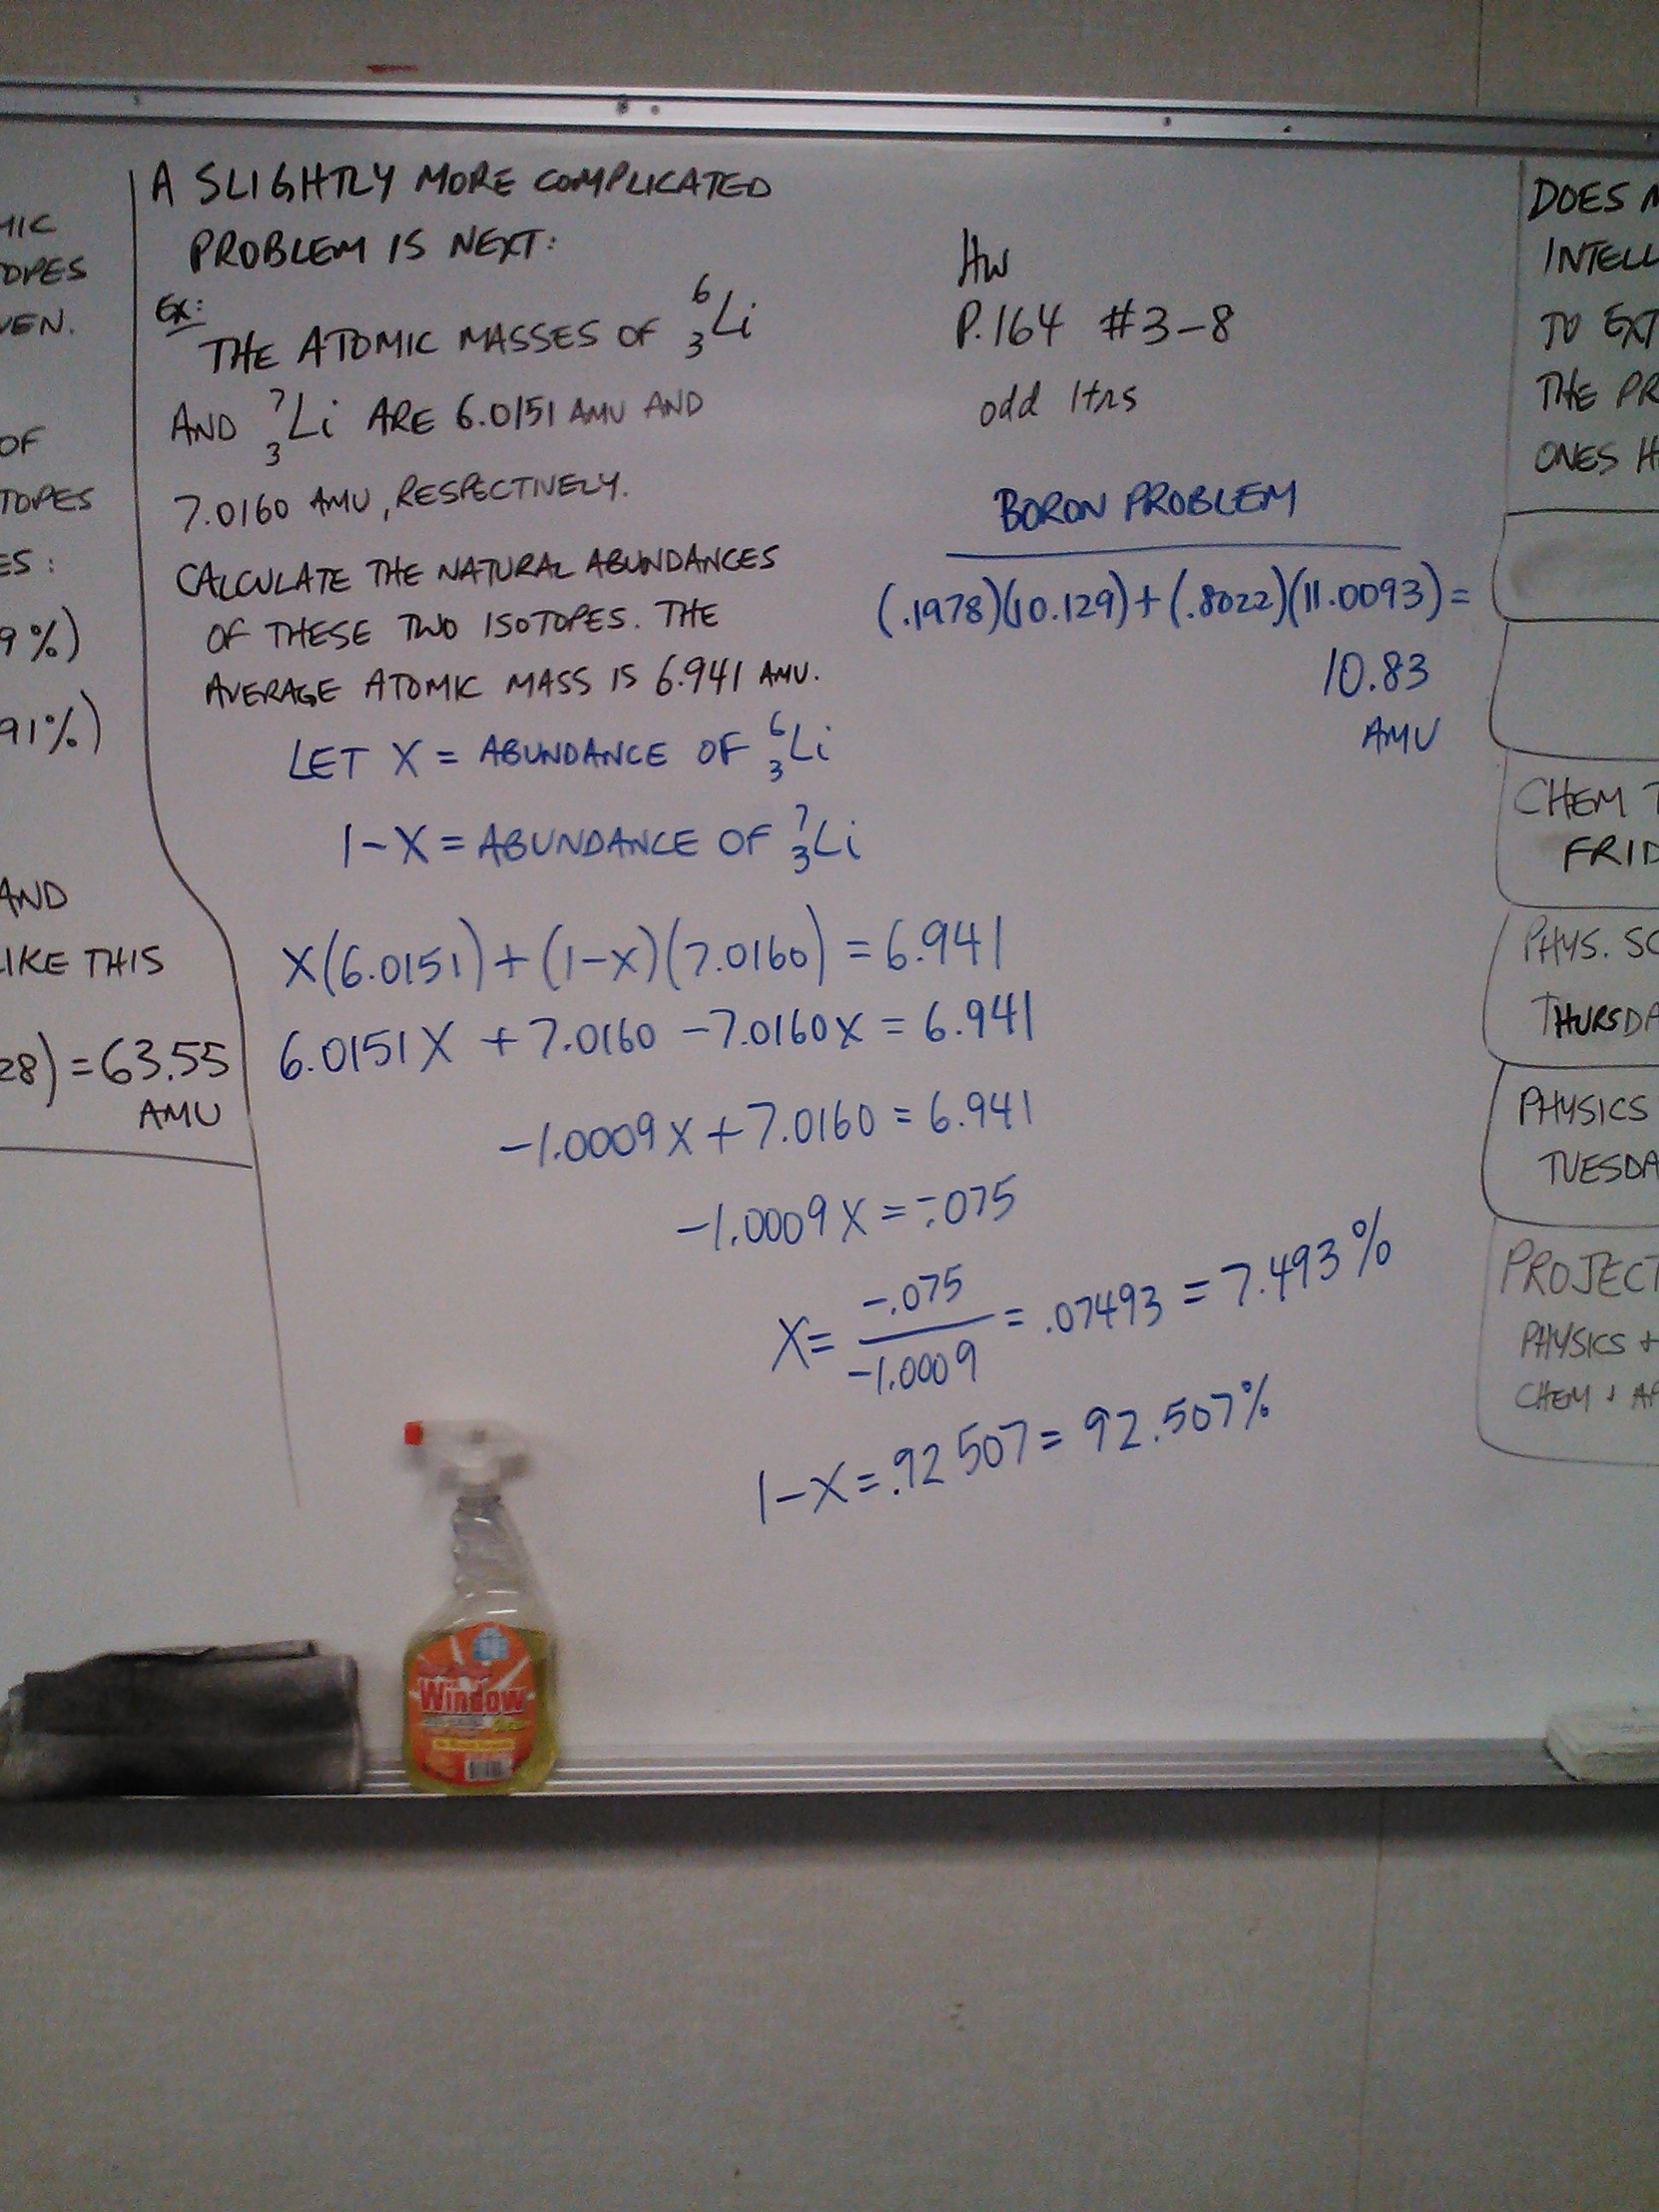 MIC
TOPES
VEN.
OF
TOPES
ES:
9%)
91%)
AND
LIKE THIS
28) = 63.55
AMU
A SLIGHTLY MORE COMPLICATED
PROBLEM IS NEXT:
EX:
THE ATOMIC MASSES OF ⁶₃Li
AND ⁷₃Li ARE 6.0151 AMU AND
7.0160 AMU, RESPECTIVELY.
CALCULATE THE NATURAL ABUNDANCES
OF THESE TWO ISOTOPES. THE
AVERAGE ATOMIC MASS IS 6.941 AMU.
LET X = ABUNDANCE OF ⁶₃Li
1-X = ABUNDANCE OF ⁷₃Li
X(6.0151) + (1-X)(7.0160) = 6.941
6.0151X + 7.0160 - 7.0160X = 6.941
-1.0009X + 7.0160 = 6.941
-1.0009X = -.075
X = -.075 / -1.0009 = .07493 = 7.493%
1-X = .92507 = 92.507%
HW
P.164 #3-8
odd ltrs
BORON PROBLEM
(.1978)(10.129) + (.8022)(11.0093) =
10.83
AMU
DOES M
INTELL
TO EXT
THE PR
ONES H
CHEM T
FRID
PHYS. SC
THURSDA
PHYSICS
TUESDA
PROJECT
PHYSICS +
CHEM + AP
Window